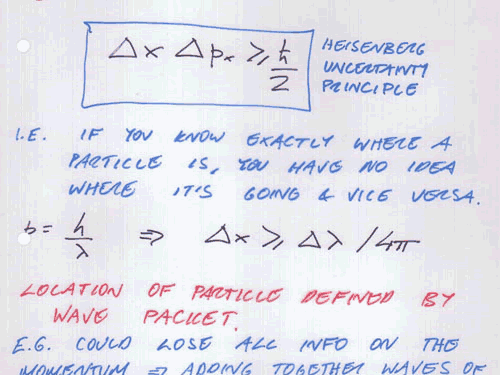 Δx Δpₓ ⩾ ħ/2
HEISENBERG
UNCERTAINTY
PRINCIPLE
I.E. IF YOU KNOW EXACTLY WHERE A
PARTICLE IS, YOU HAVE NO IDEA
WHERE IT'S GOING & VICE VERSA.
p = h/λ ⇒ Δx ⩾ Δλ/4π
LOCATION OF PARTICLE DEFINED BY
WAVE PACKET.
E.G. COULD LOSE ALL INFO ON THE
MOMENTUM ⇒ ADDING TOGETHER WAVES OF